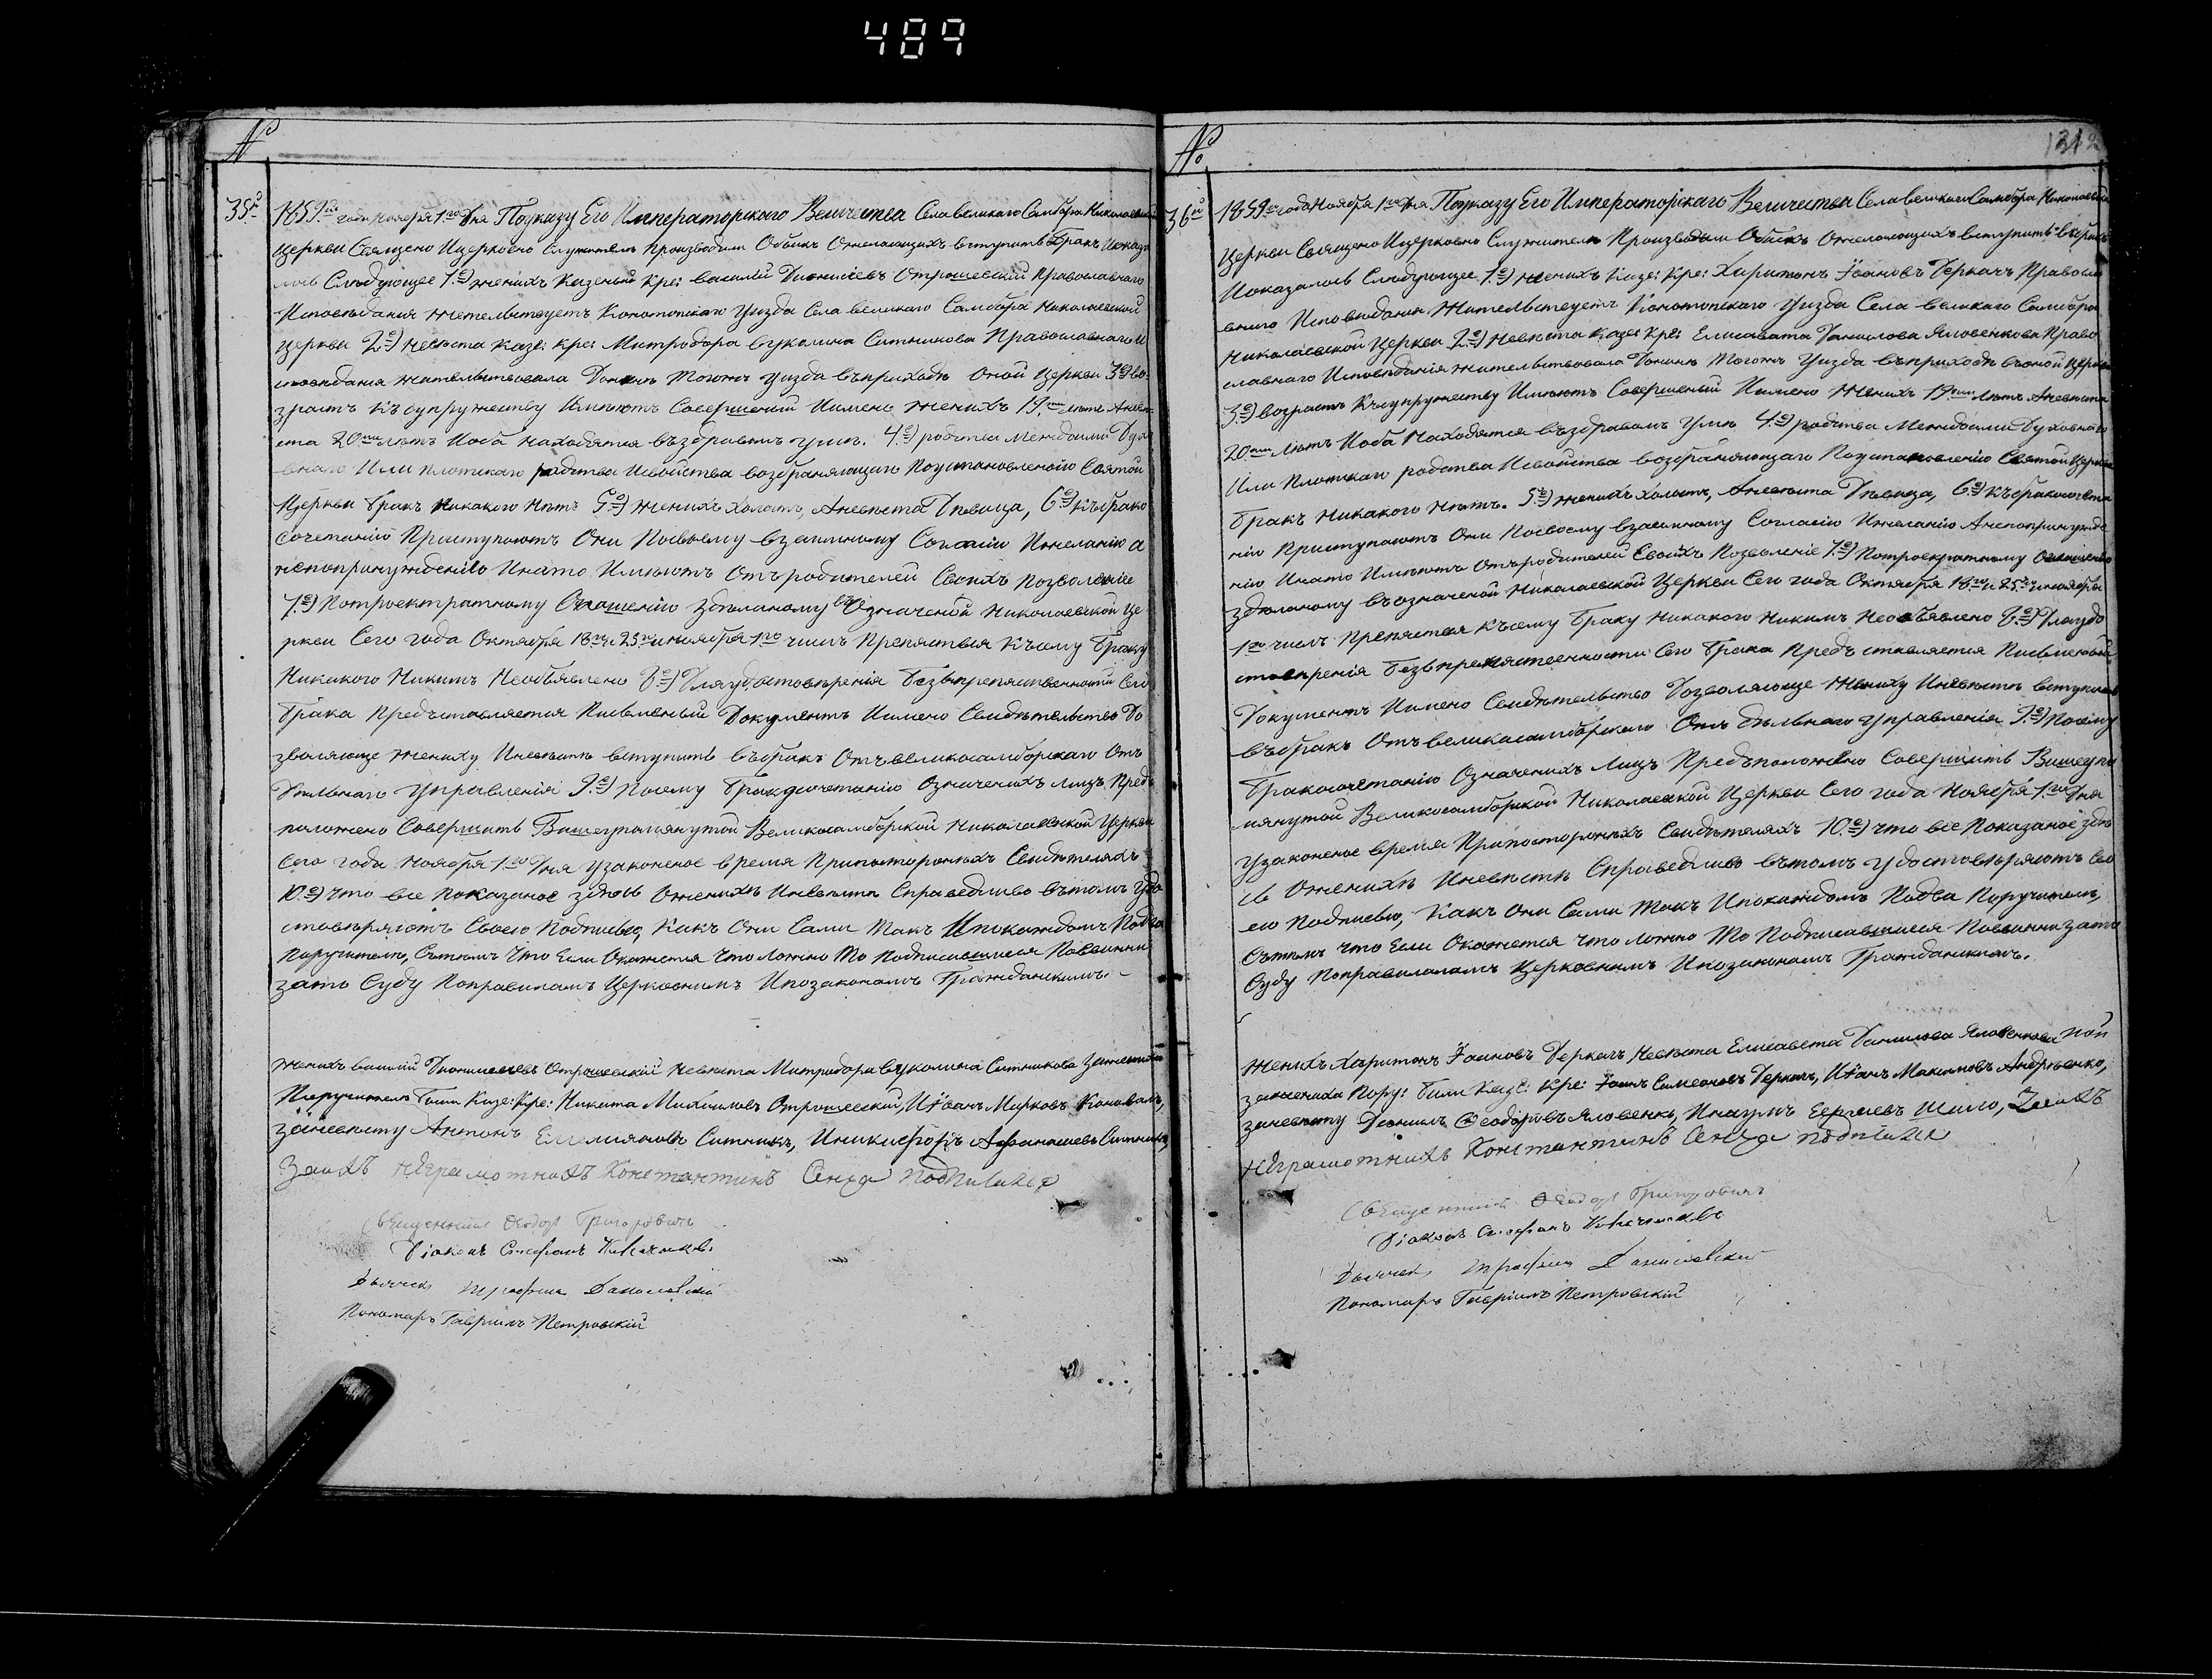 489
№
35й
1859го года ноября 1го дня Поуказу Его Императорскаго Величества Села великаго Самбора Николаевской
Церкви Священо Ицерковно Служители производили Обыск Ожелающихъ вступить вбракъ Ипоказа
лось Слѣдующее 1е) женихъ Казеный Кре: василий Дионисиевъ Отрошевский Православнаго
Исповѣдания жетельствуетъ Конотопскаго Уизда Села великаго Самбора Николаевской
церкви 2е) Невѣста казе: кре: Митродора вуколина Ситникова Православнаго И
сповѣдания жительствовала Донинѣ Тогожъ Уизда въприходѣ Оной Церкви 3е) Во
зрастъ Къ супружеству Имѣютъ Совершеный Имено женихъ 19ти лѣтъ Аневѣ
ста 20ти лѣтъ Иоба находятся въздравомъ умѣ. 4е) родства Междоими Духо
внаго Или плотскаго родства Исвойства возбраняющаго Поустановлению Святой
Церкви бракъ никакого Нѣтъ 5е) женихъ холостъ, Аневѣста Дѣвица, 6е) Къ брако
сочетанию Приступаютъ Они Посвоему взаимному Согласию Ижеланию а
непопринуждению Инато Имѣютъ Отъродителей Своихъ позволение
7е) Потроекратному Оглашению здѣланому въ Означеной Николаевской Це
ркви Сего года Октября 18го и 25го иноября 1го числъ Препяствия Къ сему браку
Никакого Никимъ Необявлено 8е) Для удостовѣрения Безъпрепяственности Сего
брака Предъставляется Письменый Документъ Имено Свидѣтельство До
зволяюще жениху Иневѣстѣ вступить въбракъ Отъ великосамборскаго Отъ
дѣльнаго Управления 9е) Посему бракосочетанию Означенихъ лицъ Предъ
положено Совершить Вышеупомянутой Великосамборской Николаевской Церкви
Сего года Ноября 1го Дня узаконеное время Припостороннихъ Свидѣтеляхъ
10е) что все показаное здѣсь Оженихѣ Иневѣстѣ Справедливо вътомъ удо
стовѣряютъ Своею Подписью, Какъ Они Сами такъ Ипокаждомъ Подва
Поручителя, Сътемъ Что Если Окажется что ложно то Подписавшиеся Повинни
зато Суду Поправиламъ Церковнимъ Ипозаконамъ Гражданскимъ.
Женихъ василий Дионисиевъ Отрошевский Невѣста Митродора вуколина Ситникова Зажениха
Поручители били Казе: Кре: Никита Михаиловъ Отрошевский, И Іванъ Марковъ Коновалъ,
заневѣсту Антонъ Емелияновъ Ситникъ, Иникифоръ Афанасиевъ Ситникъ,
За ихъ неграмотнихъ Константинъ Сенда подписался
Священникъ Феодоръ Григоровичъ
Діаконъ Стефанъ
Дьячекъ Даниловский
Пономарь Гавриилъ Петровский
№
36й
1859го года Ноября 1го дня Поуказу Его Императорскаго Величества Села великаго Самбора Николаевской
Церкви Священо Ицерковно Служители Производили Обискъ Ожелающихъ вступить вбракъ
Ипоказалось Слѣдующее 1е) женихъ Казе: Кре: Харитонъ Іоановъ Деркачъ Правосла
внаго Исповѣдания Жительствуетъ Конотопскаго Уизда Села великаго Самбора
Николаевской Церкви 2е) Невѣста Казе: Кре: Елисавета Данилова Яловенкова Право
славнаго Исповѣдания жительствовала Донинѣ Тогожъ Уизда въприходѣ въоной Церкви
3е) возрастъ Къ супружеству Имѣютъ Совершеный Имено Женихъ 19ти Лѣтъ Аневѣста
20ти Лѣтъ Иоба Находятся въздравомъ Умѣ 4е) родства Междоими Духовнаго
Или Плотскаго родства Исвойства возбраняющаго Поустановлению Святой Церкви
Бракъ Никакого Нѣтъ. 5е) женихъ холостъ, Аневѣста Дѣвица, 6е) Къ бракосочета
нию Приступаютъ Они Посвоему взаимному Согласию Ижеланию Анепопринужде
нию Инато Имѣютъ Отъродителей Своихъ Позволение 7е) Потроекратному Оглашению
здѣланому въозначеной Николаевской Церкви Сего года Октября 18го и 25го и ноября
1го числъ Препяствия Къ сему Браку Никакого Никимъ Необявлено 8е) Для удо
стовѣрения безъпрепяственности Сего Брака Предъставляется Письменый
Документъ Имено Свидѣтельство Дозволяюще Жениху Иневѣстѣ вступить
въбракъ Отъ великосамборскаго Отъ дѣльнаго управления 9е) Посему
Бракосочетанию Означенихъ Лицъ Предъположено Совершить Вишеупо
мянутой Великосамборской Николаевской Церкви Сего года Ноября 1го Дня
узаконеное время Припостороннихъ Свидѣтеляхъ 10е) что все показаное здѣ
сь Оженихѣ Иневѣстѣ Справедливо вътомъ удостовѣряютъ Сво
ею Подписью, Какъ Они Сами Такъ Ипокаждомъ Подва Поручителя,
Сътемъ что Если Окажется что ложно то Подписавшиеся Повинни зато
Суду Поправиламъ Церковнимъ Ипозаконамъ Гражданскимъ.
Женихъ Харитонъ Іоановъ Деркачъ Невѣста Елисавета Данилова Яловенкова
зажениха Пору: били Казе: Кре: Іоанъ Симеоновъ Деркачъ, И Іоанъ Максимовъ Андрѣенко,
заневѣсту Дионисъ Феодоровъ Яловенко, Инаумъ Сергиевъ Шило, За ихъ
неграмотнихъ Константинъ Сенда подписался
Священникъ Феодоръ Григоровичъ
Діаконъ Стефанъ
Дьячекъ Даниловский
Пономарь Гавриилъ Петровский